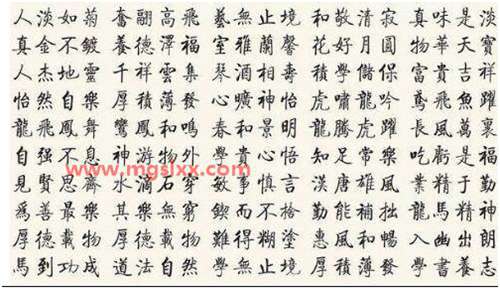 人淡如菊 奮翮高飛 藝無止境 和敬清寂 真味是淡
真金不鍍 養德澤福 室雅蘭馨 花好月圓 物華天寶
人杰地靈 千祥雲集 琴酒相壽 學儲保 富貴吉祥
怡然自樂 厚積薄發 心曠神怡 虎嘯龍吟 鳶飛魚躍
龍飛鳳舞 鸞鳳和鳴 春和景明 龍騰虎躍 長風萬裏
自强不息 神游物外 學貴心悟 知足常樂 吃虧是福
www.mgslxx.com
見賢思齊 水滴石穿 敏事慎言 漢唐雄風 業精于勤
爲善最樂 其樂無窮 鍥而不捨 勤能補拙 龍馬精神
厚德載物 厚德載物 難得糊塗 惠風和暢 入幽出朗
馬到功成 道法自然 學無止境 厚積薄發 學書養志